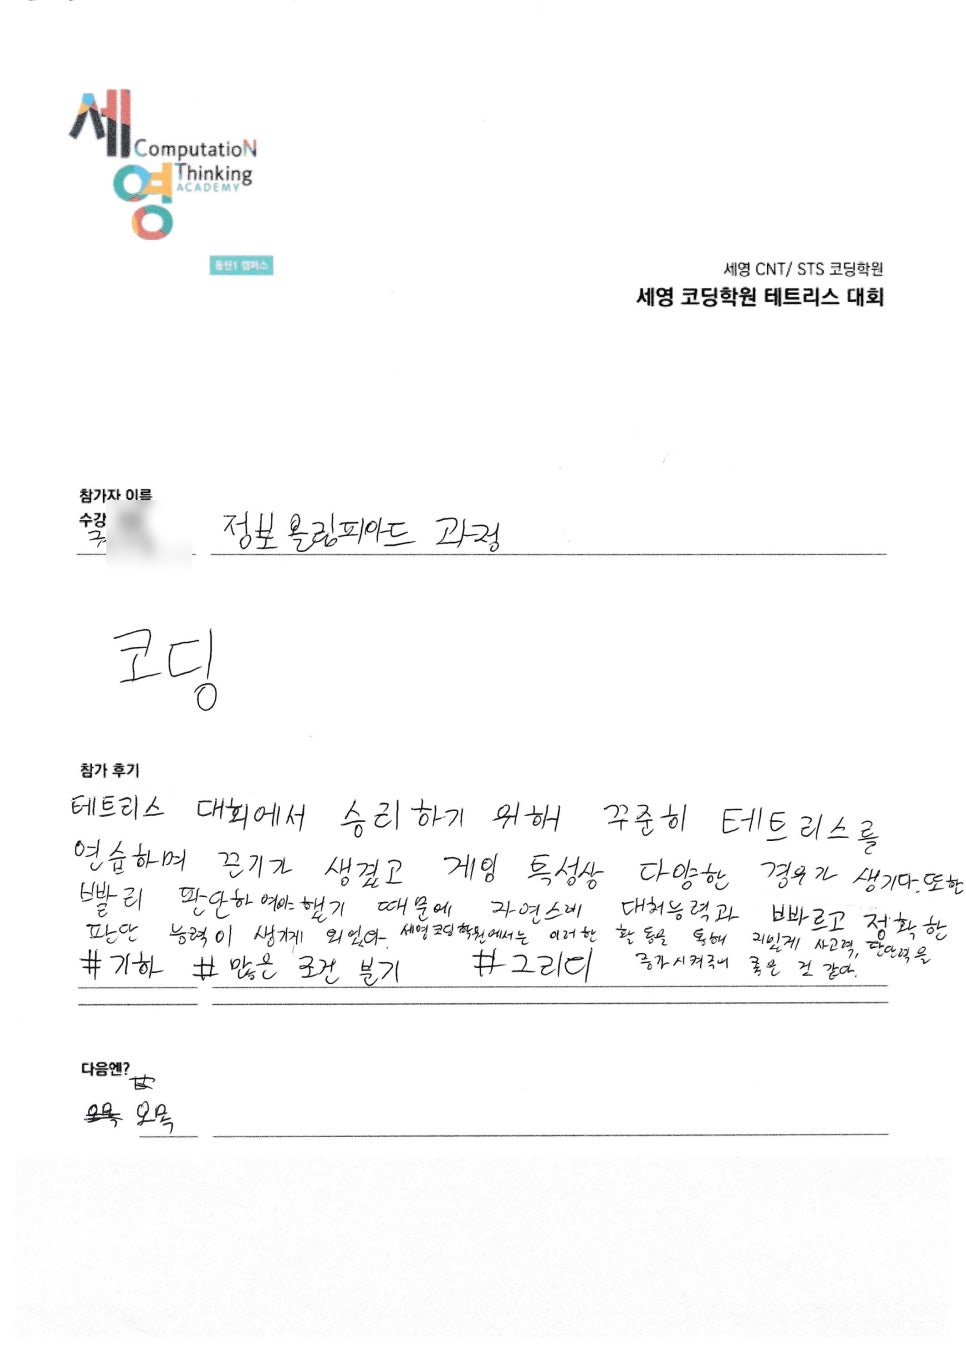 세영
ComputatioN
Thinking
ACADEMY
동탄1 캠퍼스
세영 CNT/ STS 코딩학원
세영 코딩학원 테트리스 대회
참가자 이름
수강
정보올림피아드 과정
코딩
참가 후기
테트리스 대회에서 승리하기 위해 꾸준히 테트리스를
연습하며 끈기가 생겼고 게임 특성상 다양한 경우가 생기다. 또한
빨리 판단하여야 했기 때문에 자연스레 대처능력과 빠르고 정확한
판단 능력이 생기게 되었다. 세영코딩학원에서는 이러한 활동을 통해 재밌게 사고력, 판단력을
증가시켜주니 좋은 것 같다.
#기하 #많은 조건 분기 #그리디
다음엔?
오목 오목